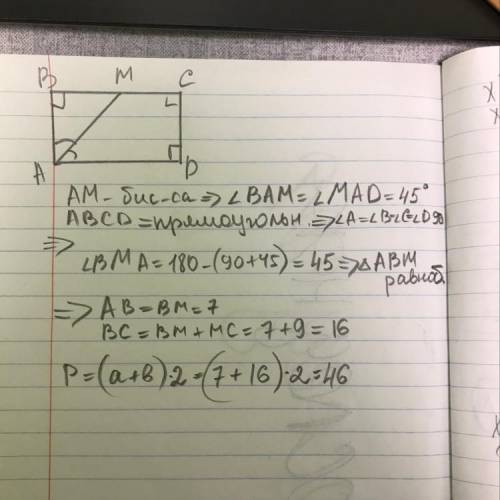 B M C
A D
AM - бис-са => ∠BAM = ∠MAD = 45°
ABCD = прямоугольн. => ∠A=∠B=∠C=∠D 90
=>
∠BMA = 180 - (90+45) = 45 => △ABM
равноб.
=> AB = BM = 7
BC = BM + MC = 7 + 9 = 16
P = (a+b)·2 = (7+16)·2 = 46